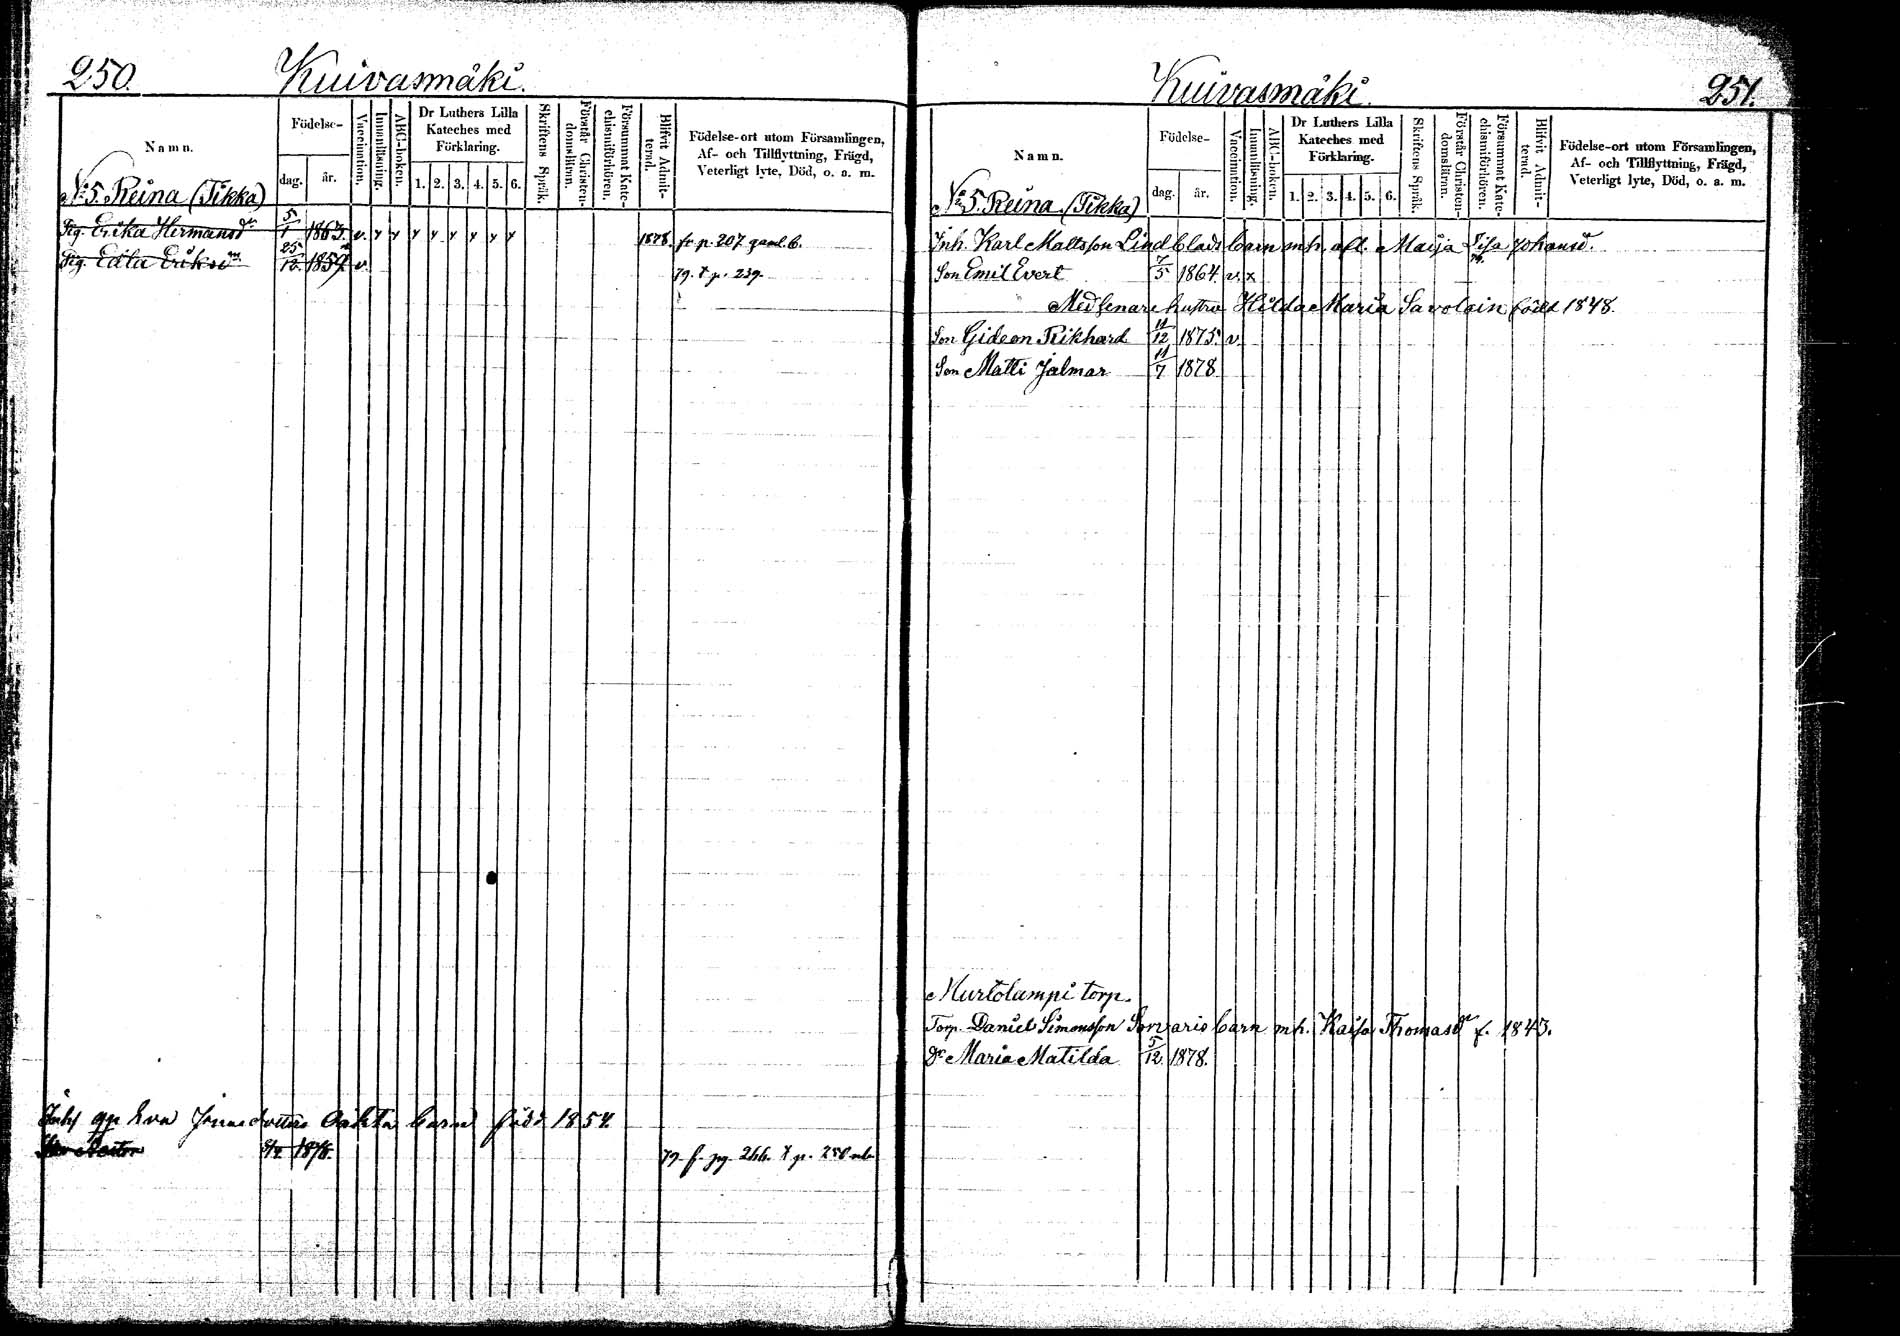 250. Kuivasmäki.
Namn.
Födelse-
dag. år.
Vaccination.
Innanläsning.
ABC-boken.
Dr Luthers Lilla Kateches med Förklaring.
1. 2. 3. 4. 5. 6.
Skriftens Språk.
Förstår Christen-domsläran.
Försummat Kate-chismiförhören.
Blifvit Admit-terad.
Födelse-ort utom Församlingen,
Af- och Tillflyttning, Frägd,
Veterligt lyte, Död, o. a. m.
No 5. Reina (Tikka)
Pig. Erika Hermansdr 5/1 1863. v. 1878. fr. p. 207 gaml. b.
Pig. Edla Eriksdr 25/12 1859 v. 79. x p. 239.
Inh. Eva Jonasdotters oäkta barn född 1854.
Son Nestor 1878. 79. f. pg. 266. x p. 250
Kuivasmäki. 251.
Namn.
Födelse-
dag. år.
Vaccination.
Innanläsning.
ABC-boken.
Dr Luthers Lilla Kateches med Förklaring.
1. 2. 3. 4. 5. 6.
Skriftens Språk.
Förstår Christen-domsläran.
Försummat Kate-chismiförhören.
Blifvit Admit-terad.
Födelse-ort utom Församlingen,
Af- och Tillflyttning, Frägd,
Veterligt lyte, Död, o. a. m.
No 5. Reina (Tikka)
Inh. Karl Mattsson Lindblads barn mh. afl. Maija Lisa Johansd.
Son Emil Evert 7/5 1864. v. x
Med senare hustru Hilda Maria Savolain född 1848.
Son Gideon Rikhard 11/12 1875. v.
Son Matti Jalmar 11/7 1878
Murtolampi torp.
Torp. Daniel Simonsson Sorvaris barn mh. Kaisa Thomasdr f. 1843.
Dr Maria Matilda 5/12 1878.